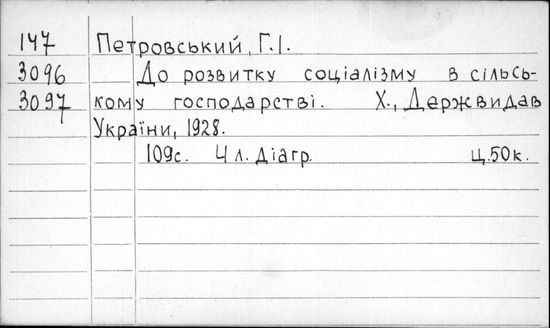 147 Петровський, Г.І.
3096 До розвитку соціалізму в сільсь-
3097 кому господарстві. Х., Держвидав
України, 1928.
109с. 4 л. діагр. ц.50к.